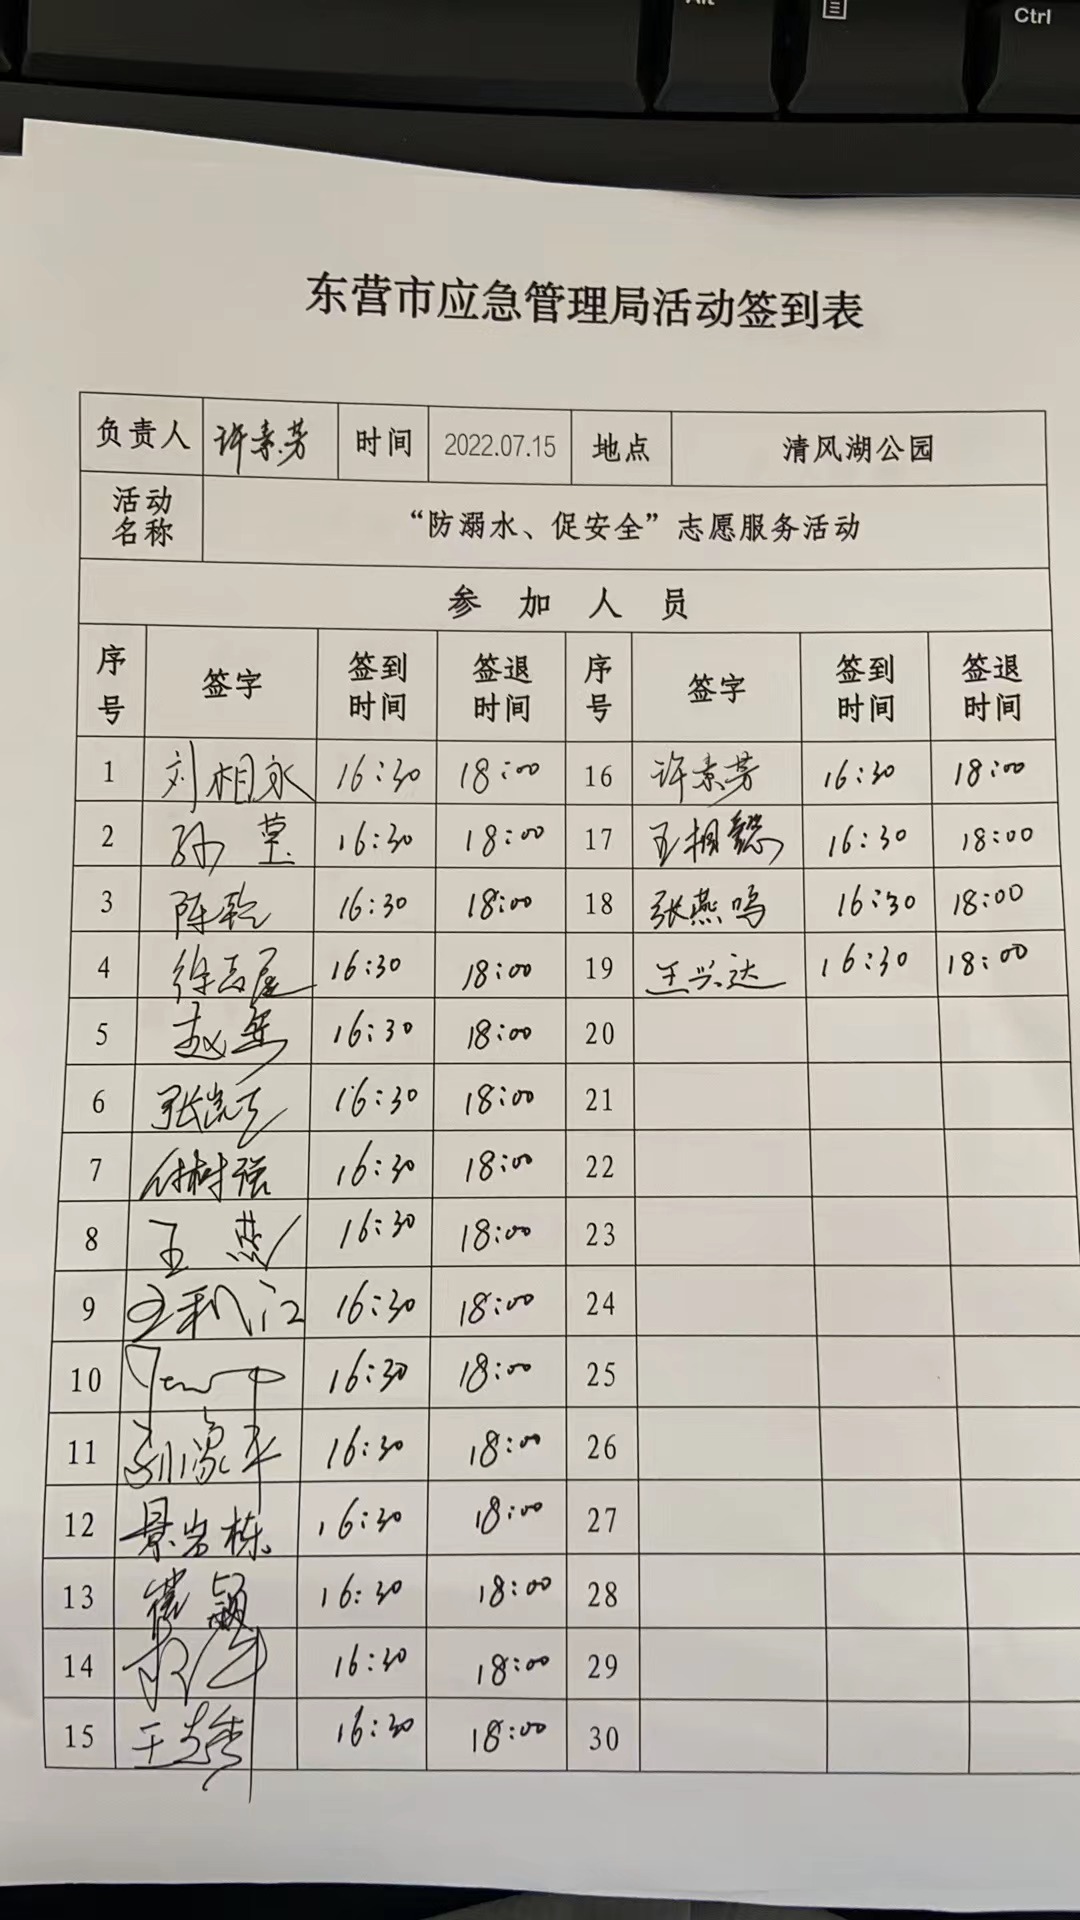 Alt
Ctrl
东营市应急管理局活动签到表
负责人 许素芳 时间 2022.07.15 地点 清风湖公园
活动名称 “防溺水、促安全”志愿服务活动
参加人员
序号 签字 签到时间 签退时间 序号 签字 签到时间 签退时间
1 刘相永 16:30 18:00 16 许素芳 16:30 18:00
2 孙 16:30 18:00 17 王相懿 16:30 18:00
3 陈 16:30 18:00 18 张燕鸣 16:30 18:00
4 徐 16:30 18:00 19 王兴达 16:30 18:00
5 赵 16:30 18:00 20
6 张 16:30 18:00 21
7 付树强 16:30 18:00 22
8 王燕 16:30 18:00 23
9 王利江 16:30 18:00 24
10 16:30 18:00 25
11 刘家 16:30 18:00 26
12 景岩栋 16:30 18:00 27
13 崔颖 16:30 18:00 28
14 16:30 18:00 29
15 王 16:30 18:00 30